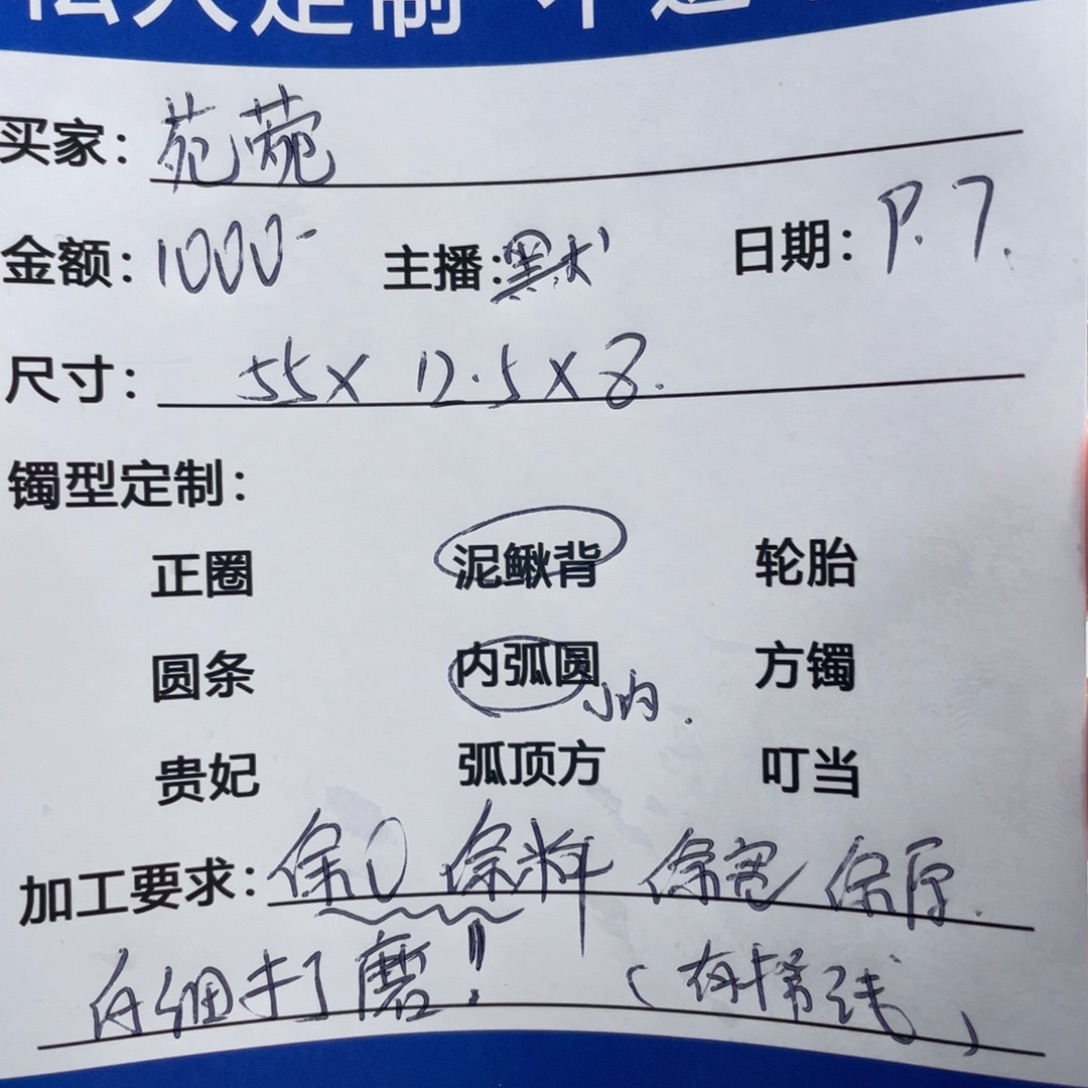 私人定制
买家：苑菀
金额：1000- 主播：默水 日期：P.7.
尺寸：55X 12.5X8.
镯型定制：
正圈 泥鳅背 轮胎
圆条 内弧圆 方镯
小内.
贵妃 弧顶方 叮当
加工要求：保口 保料 保宽 保厚.
仔细打磨！（有棉线）